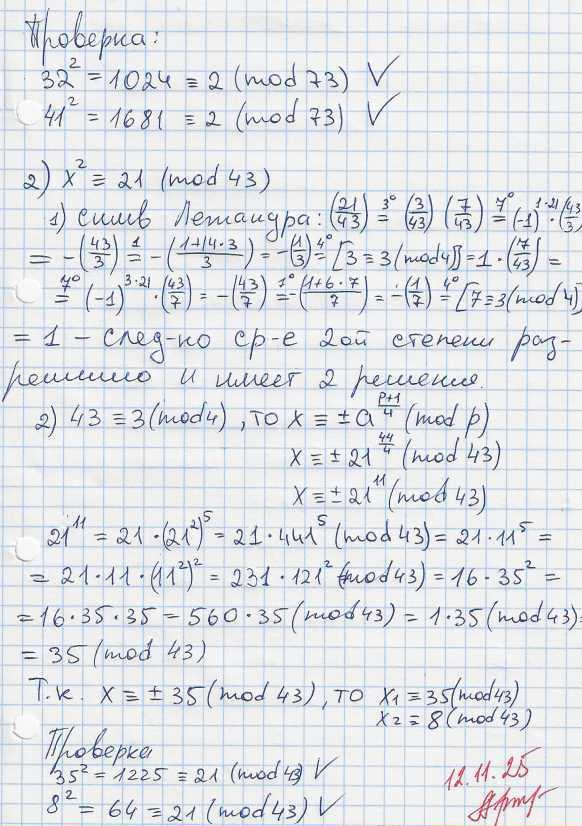 Проверка:
32² = 1024 ≡ 2 (mod 73) ✓
41² = 1681 ≡ 2 (mod 73) ✓
2) x² ≡ 21 (mod 43)
1) симв Лежандра: (21/43) =^{3°} (3/43) (7/43) =^{7°} (-1)^{1·21} · (43/3)
= -(43/3) =^{1} -((1+14·3)/3) = -(1/3) =^{4°} [3 ≡ 3(mod4)] = 1 · (7/43) =
=^{7°} (-1)^{3·21} · (43/7) = -(43/7) =^{1°} -((1+6·7)/7) = -(1/7) =^{4°} [7 ≡ 3(mod 4)]
= 1 – след-но ср-е 2ой степени раз-
решимо и имеет 2 решения.
2) 43 ≡ 3(mod 4), то x ≡ ± a^{(p+1)/4} (mod p)
x ≡ ± 21^{44/4} (mod 43)
x ≡ ± 21¹¹ (mod 43)
21¹¹ = 21 · (21²)⁵ = 21 · 441⁵ (mod 43) = 21 · 11⁵ =
= 21 · 11 · (11²)² = 231 · 121² (mod 43) = 16 · 35² =
= 16 · 35 · 35 = 560 · 35 (mod 43) = 1 · 35 (mod 43) =
= 35 (mod 43)
Т.к. x ≡ ± 35 (mod 43), то x₁ ≡ 35(mod 43)
x₂ ≡ 8(mod 43)
Проверка
35² = 1225 ≡ 21 (mod 43) ✓
8² = 64 ≡ 21 (mod 43) ✓
12.11.25